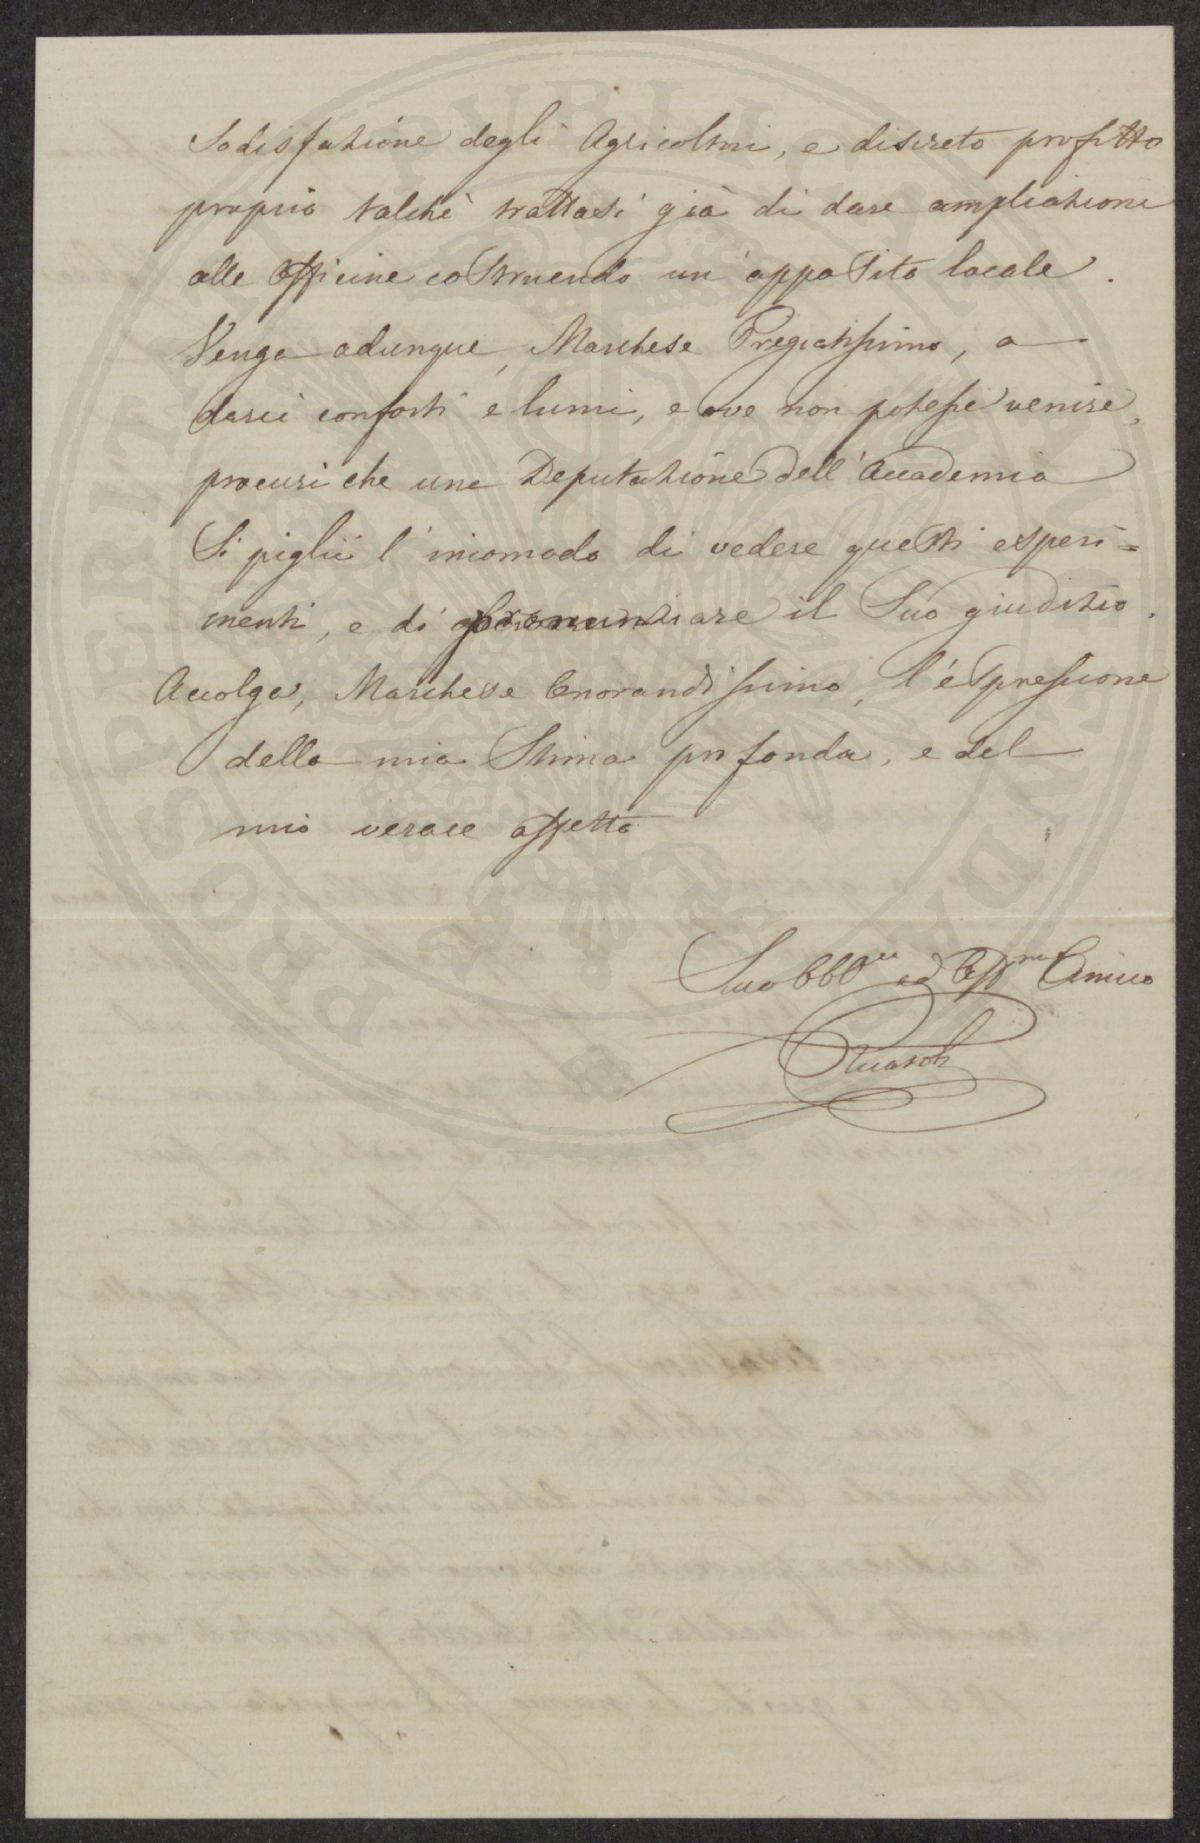 Sodisfazione degli Agricoltori, e discreto profitto
proprio talchè trattasi già di dare ampliazione
alle Officine costruendo un' apposito locale.
Venga adunque, Marchese Pregiatissimo, a
darci conforti e lumi, e ove non potesse venire,
procuri che una Deputazione dell' Accademia
Si piglii l' incomodo di vedere questi esperi=
menti, e di pronunziare il Suo giudizio.
Accolga, Marchese Onorandissimo, l' espressione
della mia Stima profonda, e del
mio verace affetto
Suo ed Amico